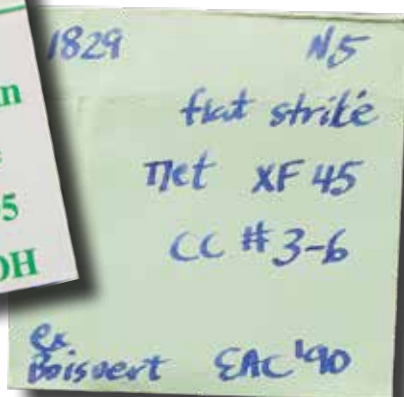 1829 N5
flat strike
net XF 45
CC #3-6
ex
Boisvert EAC '90
5
OH